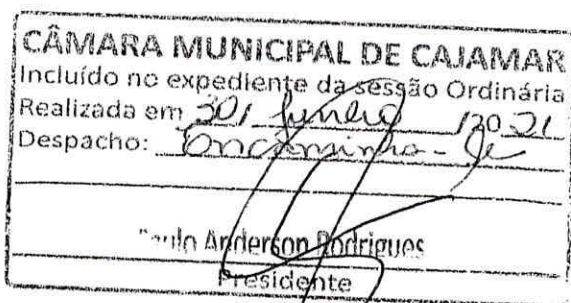 CÂMARA MUNICIPAL DE CAJAMAR
Incluído no expediente da sessão Ordinária
Realizada em 30/ junho /20 21
Despacho: Encaminha-se
Paulo Anderson Rodrigues
Presidente